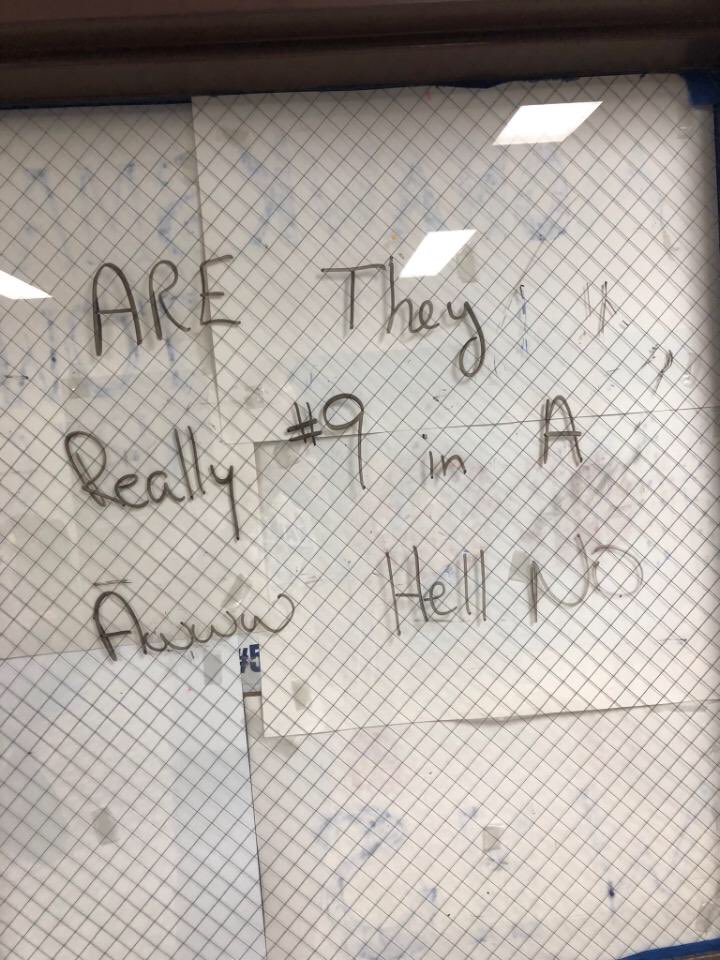 ARE They
Really #9 in A
Awww Hell No
#5